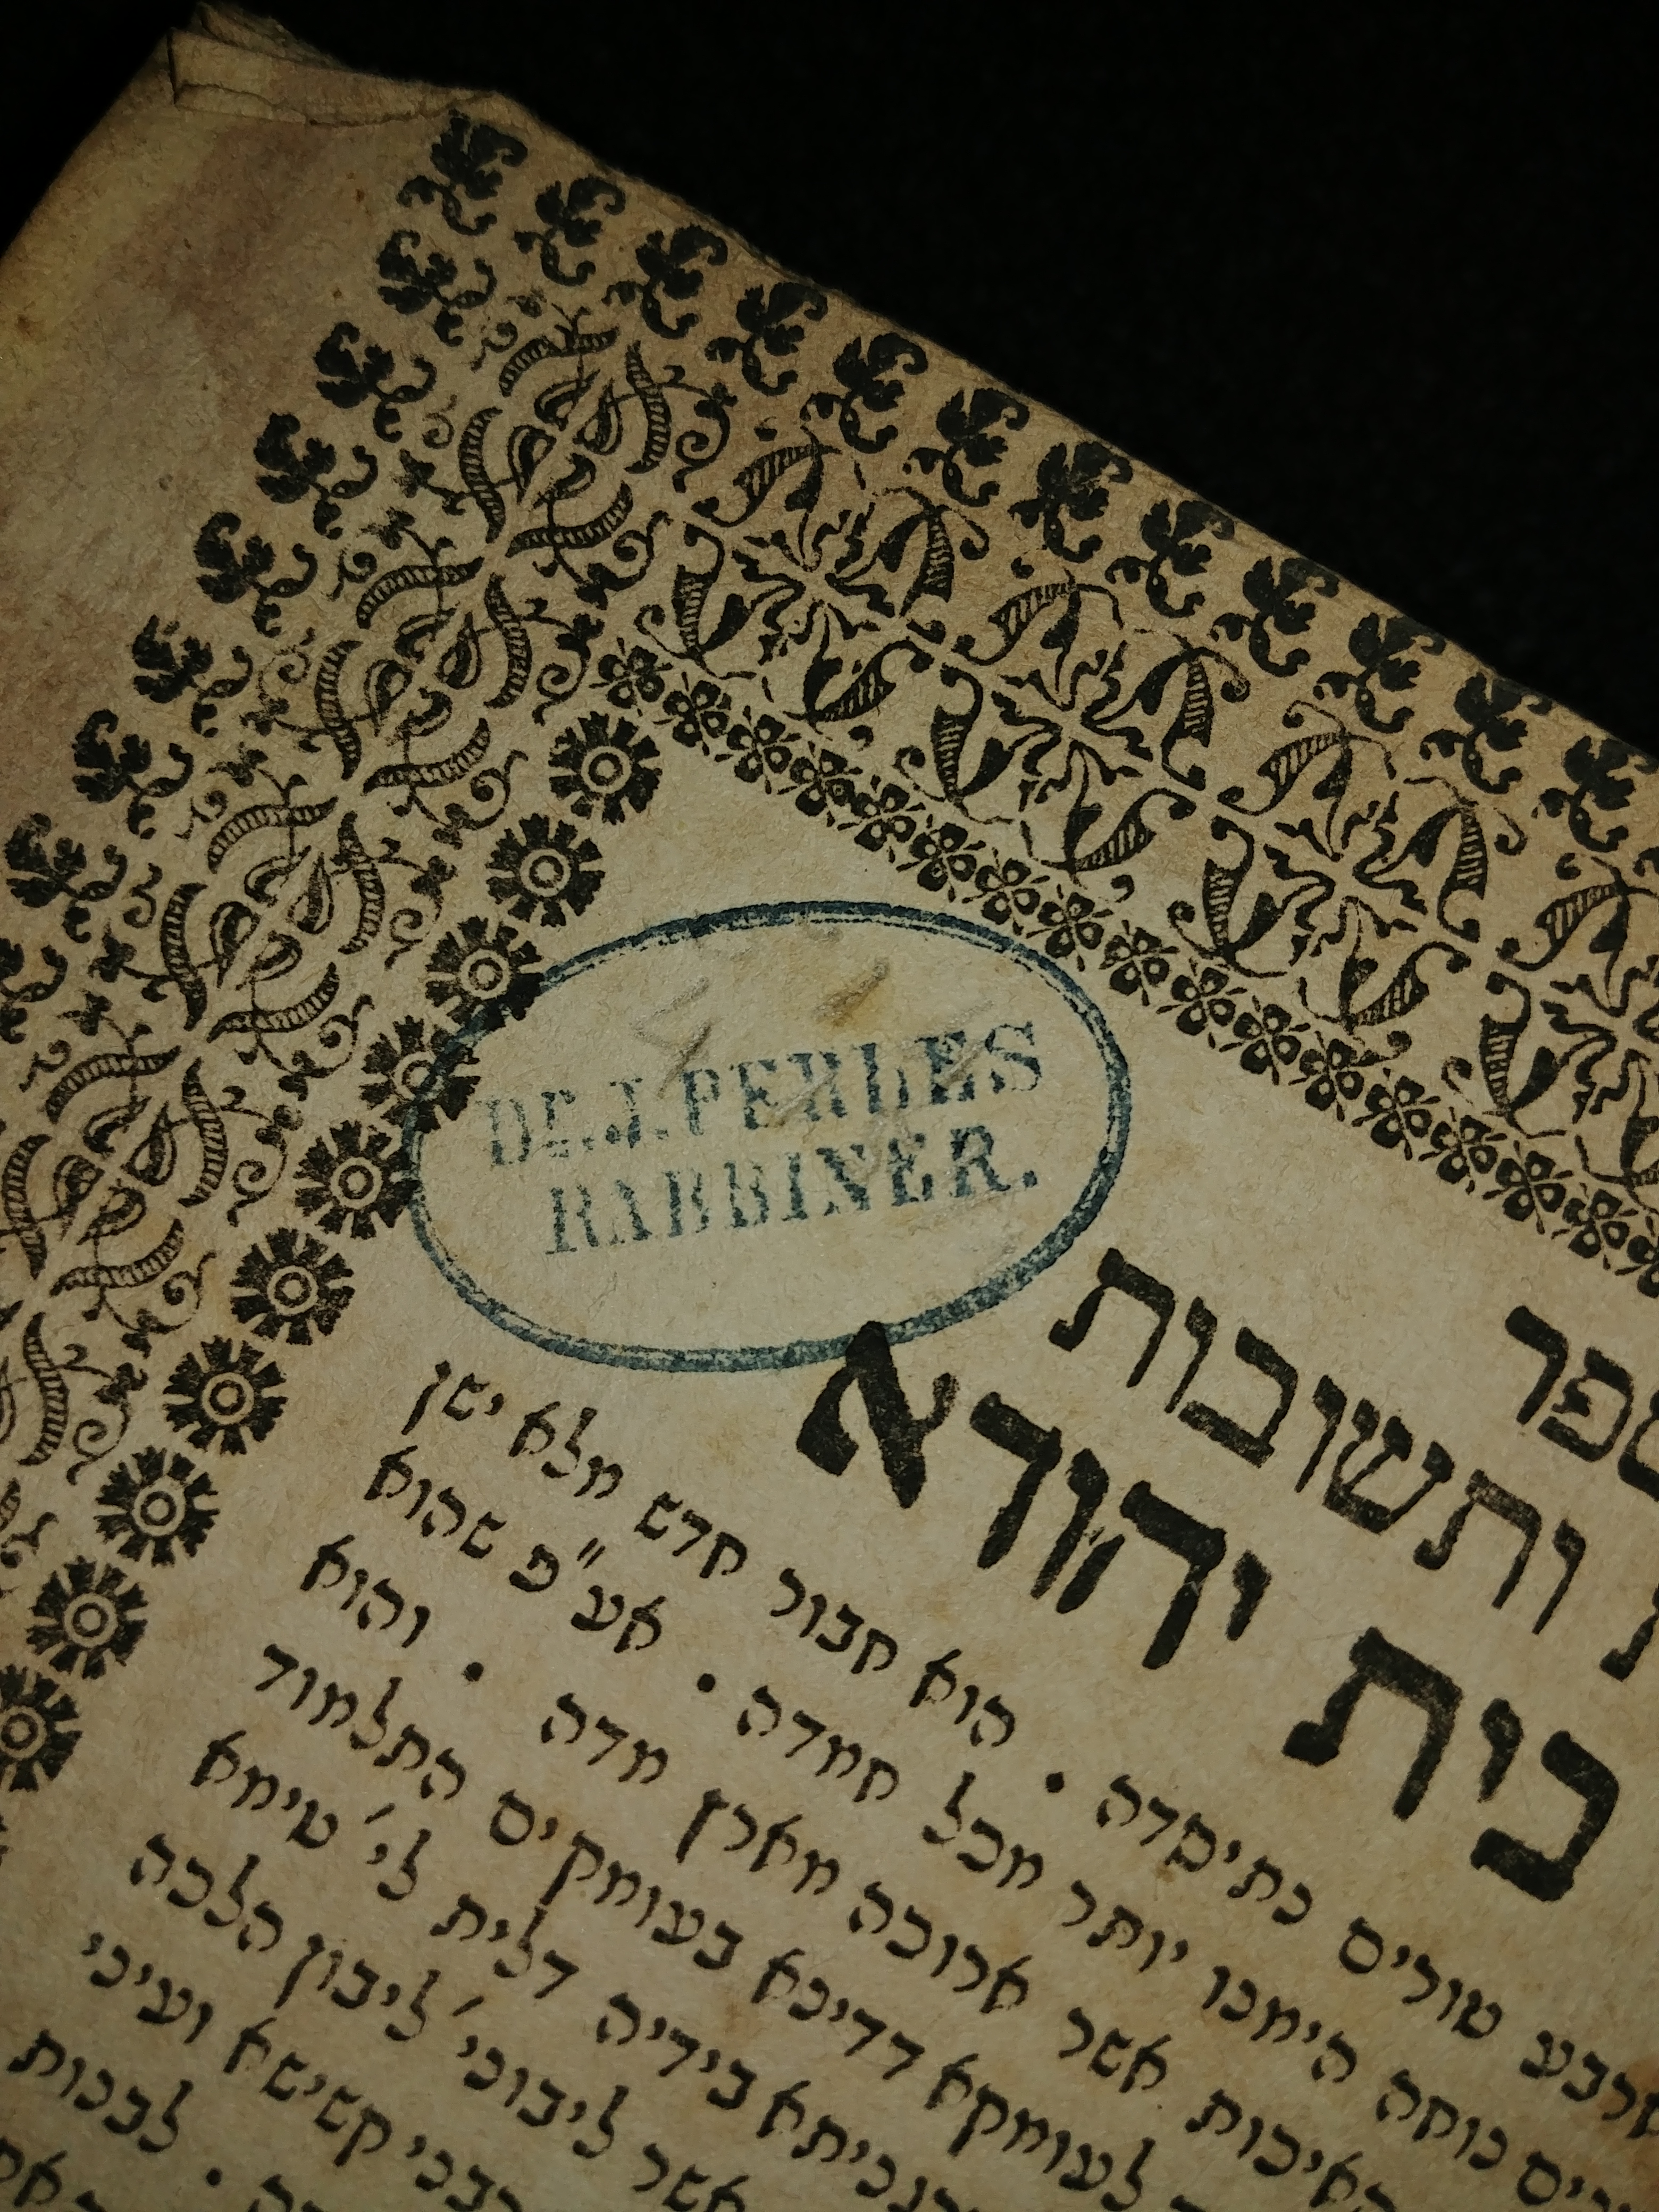 Dr. J. PERLES
RABBINER.
ספר
ותשובות
בית יהודא
ארבע טורים נתיסדה • הוא חבור חדש מלא ישן
נוחה הימנו יותר מכל חמדה • אע״פ שהוא
האיכות אשר ארוכה מארץ מדה • והוא
לעומקא דדינא בעומקים התלמוד
בידיה דלית לי׳ טימא
אשר ליבוני׳ ליבון הלכה
קשישא ועיני
לבנות